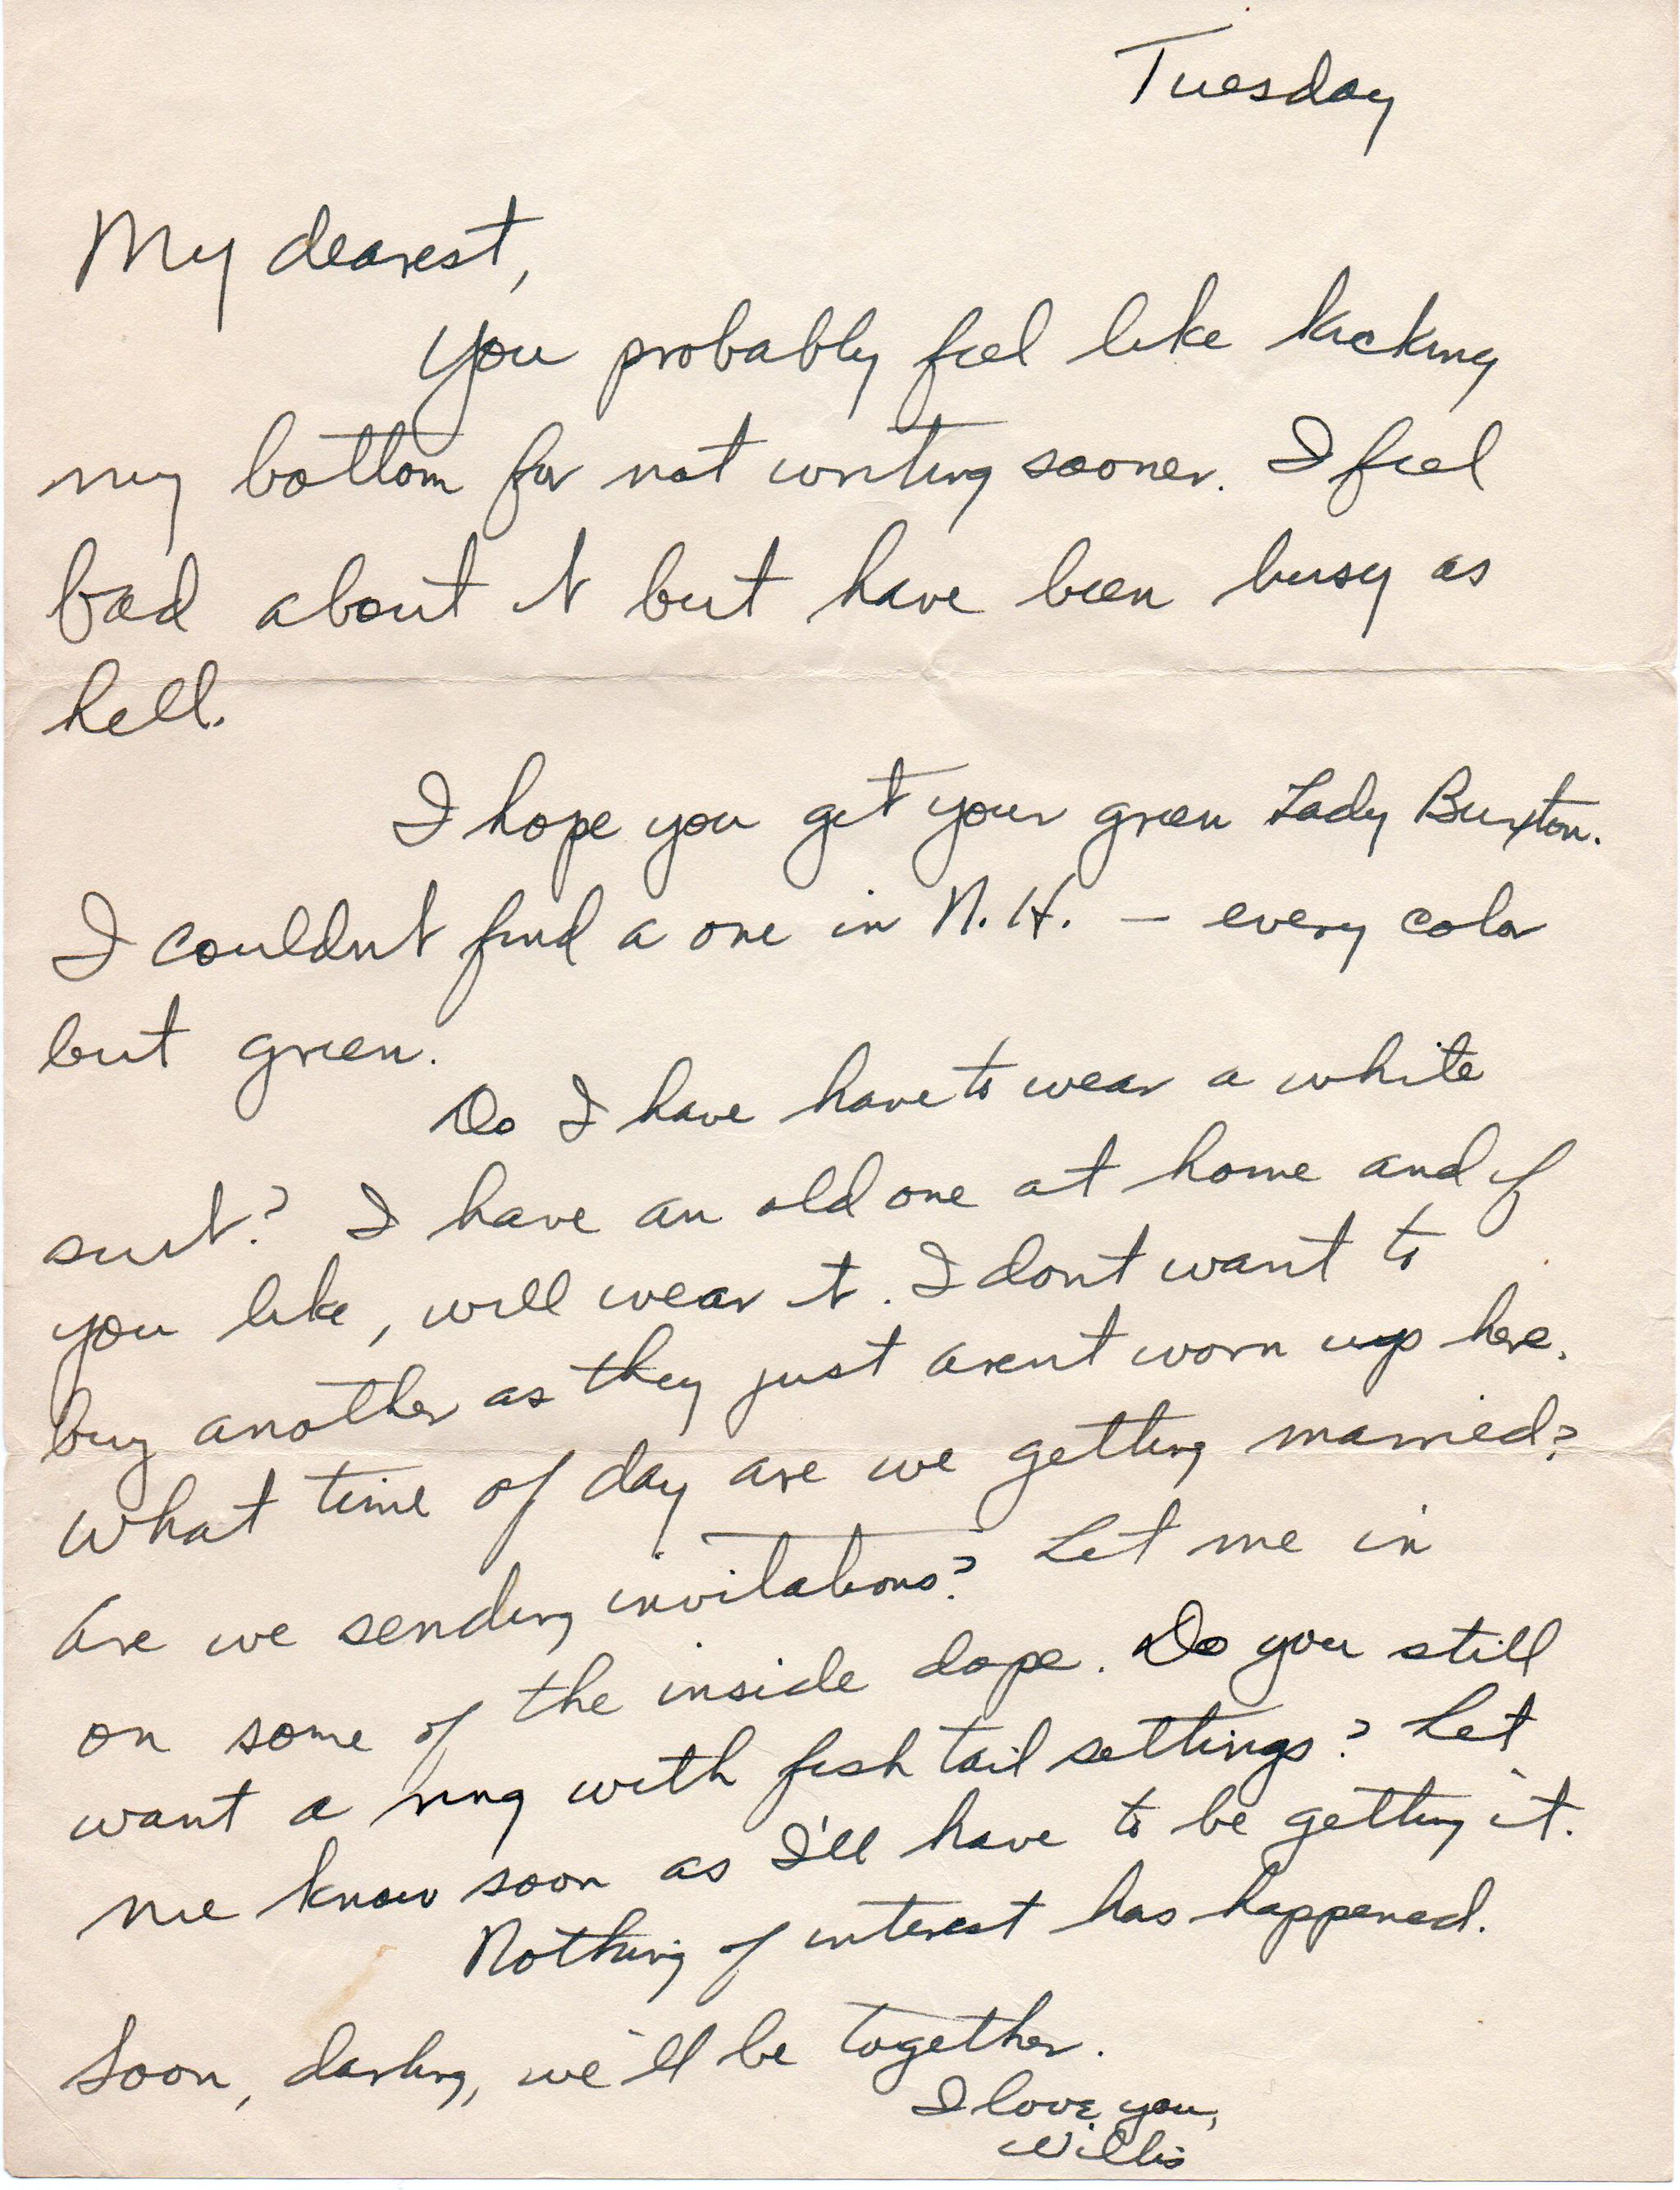 Tuesday
My dearest,
You probably feel like kicking
my bottom for not writing sooner. I feel
bad about it but have been busy as
hell.
I hope you get your green Lady Buxton.
I couldnt find a one in N.H. — every color
but green.
Do I have have to wear a white
suit? I have an old one at home and if
you like, will wear it. I dont want to
buy another as they just arent worn up here.
What time of day are we getting married?
Are we sending invitations? Let me in
on some of the inside dope. Do you still
want a ring with fish tail settings? Let
me know soon as I'll have to be getting it.
Nothing of interest has happened.
Soon, darling, we'll be together.
I love you,
Willis